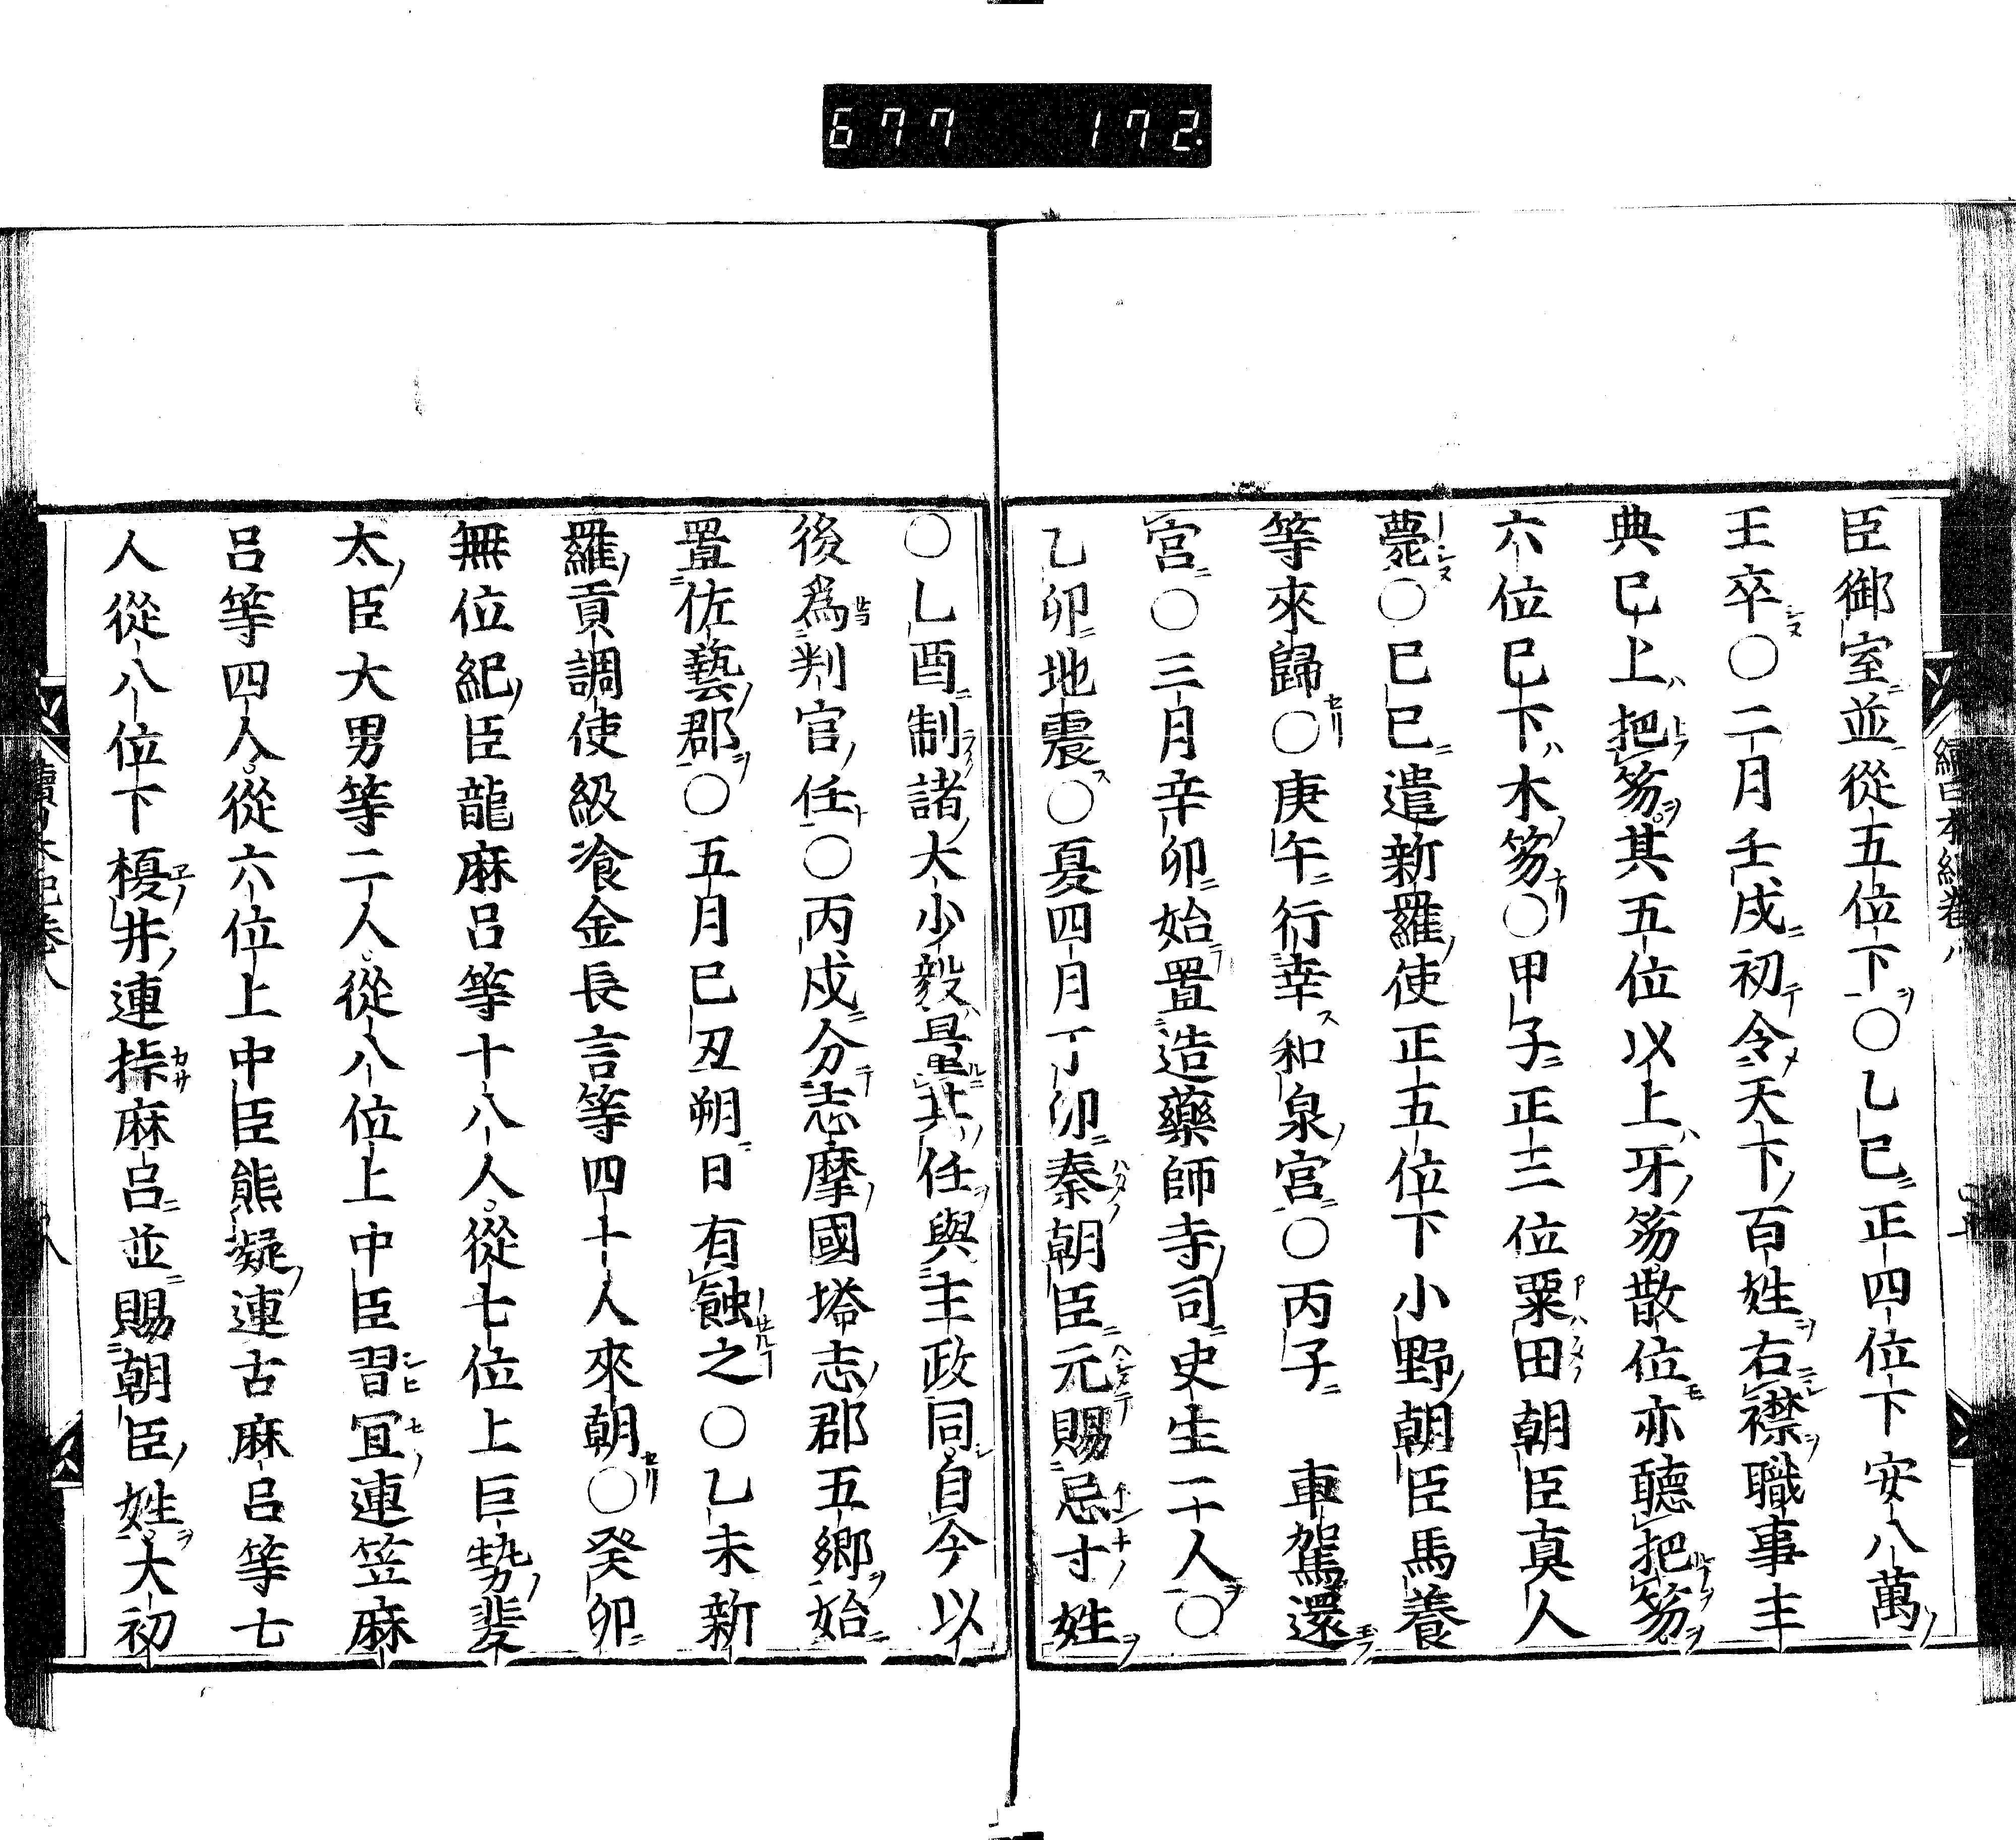 677 172.
臣御室並從五位下○乙巳正四位下安八萬
王卒○二月壬戌初令天下百姓右襟職事主
典已上把笏其五位以上牙笏散位亦聽把笏
六位已下木笏○甲子正三位粟田朝臣真人
薨○己巳遣新羅使正五位下小野朝臣馬養
等來歸○庚午行幸和泉宮○丙子 車駕還
宮○三月辛卯始置造藥師寺司史生二十人○
乙卯地震○夏四月丁卯秦朝臣元賜忌寸姓
○乙酉制諸大少毅量其任與主政同自今以
後爲判官任○丙戌分志摩國塔志郡五鄉始
置佐藝郡○五月己丑朔日有蝕之○乙未新
羅貢調使級飡金長言等四十人來朝○癸卯
無位紀臣龍麻呂等十八人從七位上巨勢斐
太臣大男等二人從八位上中臣習冝連笠麻
呂等四人從六位上中臣熊凝連古麻呂等七
人從八位下榎井連挊麻呂並賜朝臣姓大初